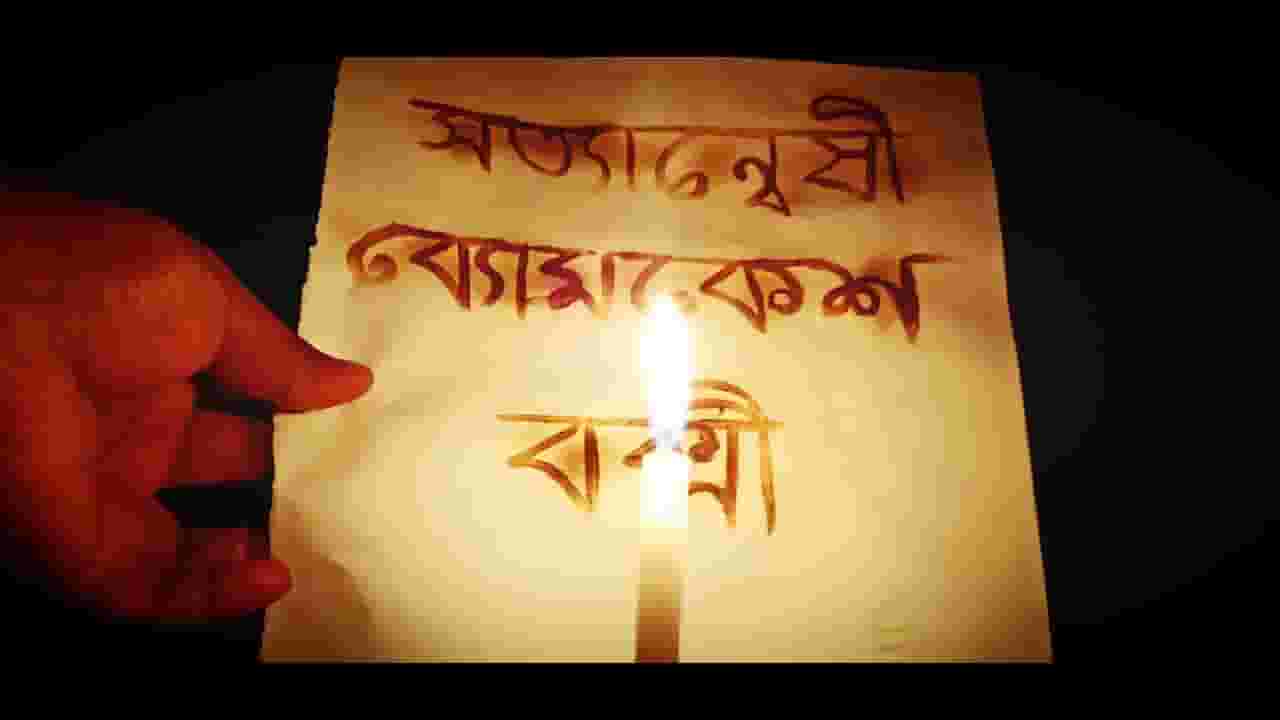 সত্যান্বেষী
ব্যোমকেশ
বক্সী